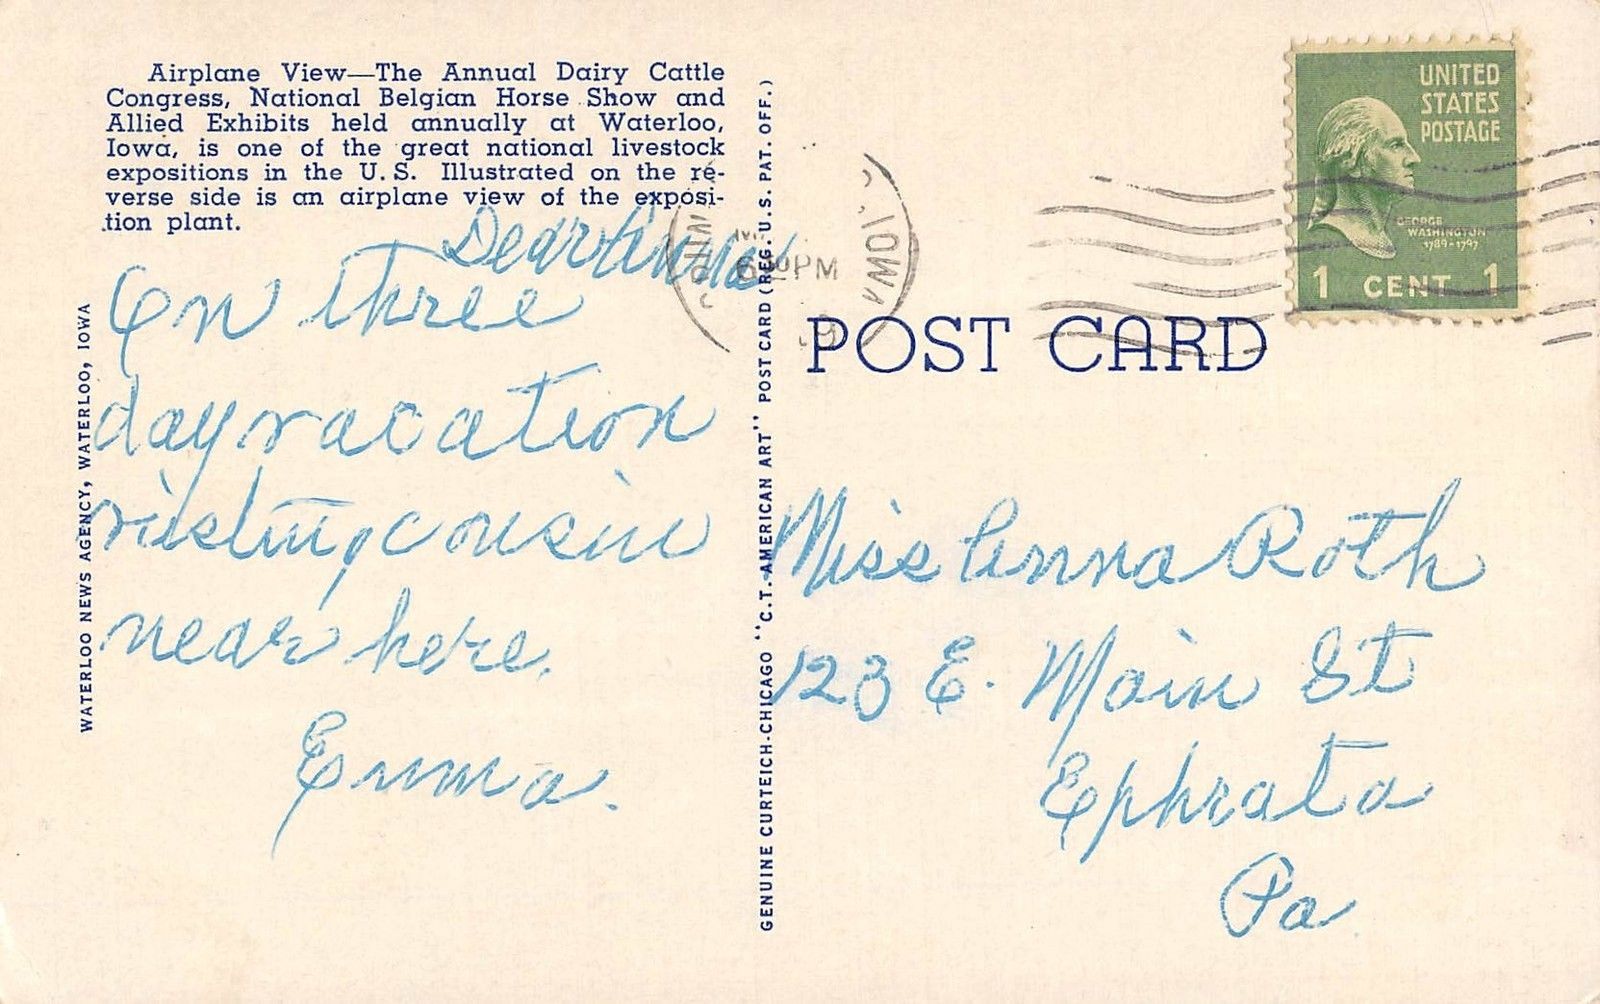 Airplane View—The Annual Dairy Cattle
Congress, National Belgian Horse Show and
Allied Exhibits held annually at Waterloo,
Iowa, is one of the great national livestock
expositions in the U. S. Illustrated on the re-
verse side is an airplane view of the exposi-
tion plant.
Dear Anna
On three
day vacation
visiting cousin
near here.
Emma.
WATERLOO NEWS AGENCY, WATERLOO, IOWA
GENUINE CURTEICH-CHICAGO "C.T. AMERICAN ART" POST CARD (REG. U.S. PAT. OFF.)
UNITED
STATES
POSTAGE
GEORGE
WASHINGTON
1789-1797
1 CENT 1
PM
IOWA
POST CARD
Miss Anna Roth
123 E. Main St
Ephrata
Pa.